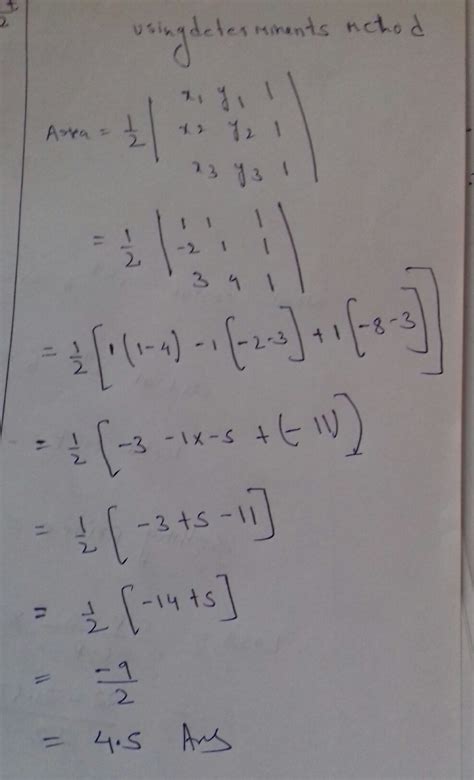 1/2
using determinents nethod
Area = 1/2 | x1 y1 1
x2 y2 1
x3 y3 1 |
= 1/2 | 1 1 1
-2 1 1
3 4 1 |
= 1/2 [ 1(1-4) -1[-2-3] +1[-8-3] ]
= 1/2 [ -3 -1x-5 +(-11) ]
= 1/2 [ -3+5-11 ]
= 1/2 [ -14+5 ]
= -9/2
= 4.5 Ans